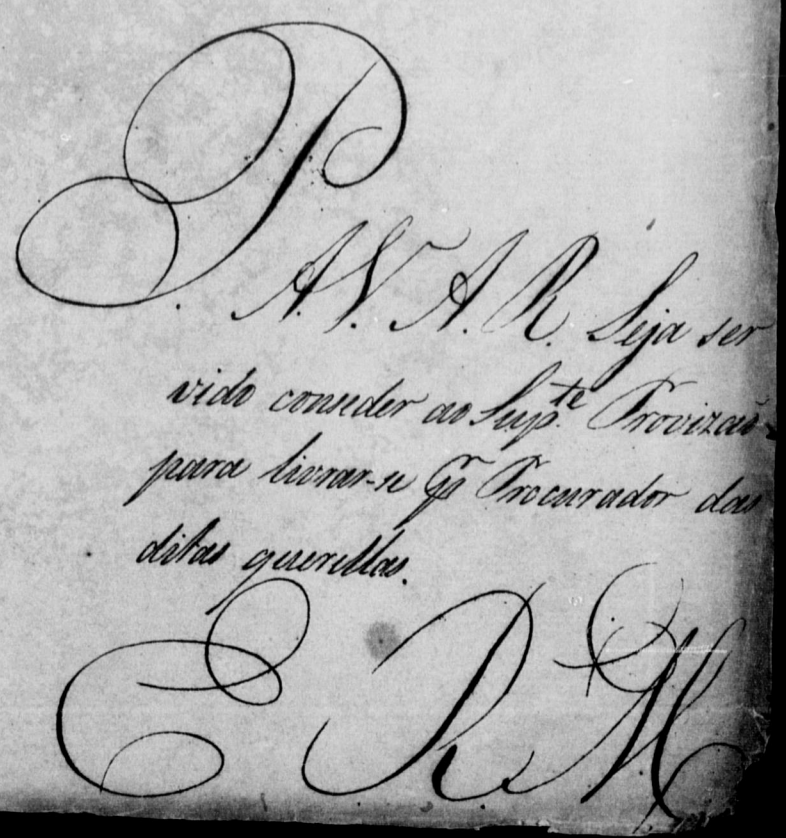 P.
A. V. A. R. Seja ser
vido conseder ao Sup.te Provizaõ
para livrar-se p.r Procurador das
ditas querellas.
E R M